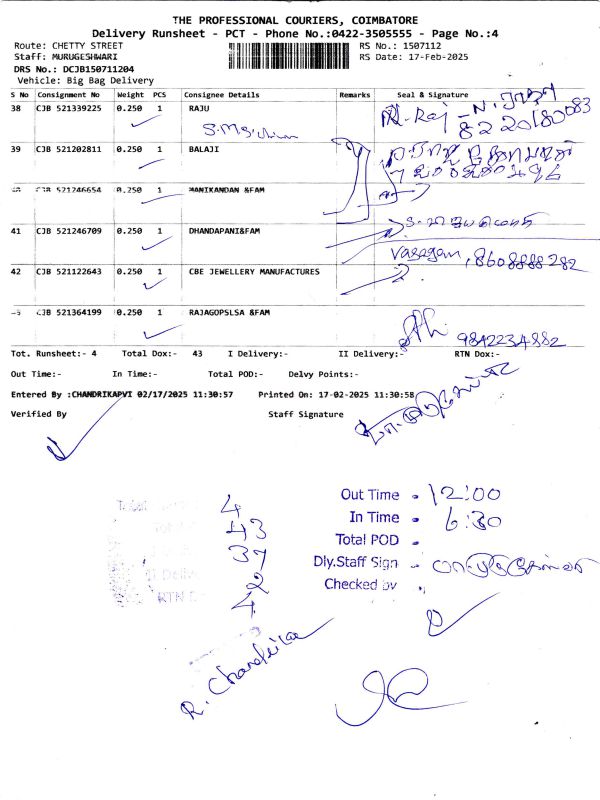 THE PROFESSIONAL COURIERS, COIMBATORE
Delivery Runsheet - PCT - Phone No.:0422-3505555 - Page No.:4
Route: CHETTY STREET RS No.: 1507112
Staff: MURUGESHWARI RS Date: 17-Feb-2025
DRS No.: DCJB150711204
Vehicle: Big Bag Delivery
S No Consignment No Weight PCS Consignee Details Remarks Seal & Signature
38 CJB 521339225 0.250 1 RAJU N. ராஜு
8220180083
39 CJB 521202811 0.250 1 BALAJI
CJB 521246654 0.250 1 MANIKANDAN &FAM
41 CJB 521246709 0.250 1 DHANDAPANI&FAM
42 CJB 521122643 0.250 1 CBE JEWELLERY MANUFACTURES Vasagam, 8608888282
CJB 521364199 0.250 1 RAJAGOPSLSA &FAM
9842234882
Tot. Runsheet:- 4 Total Dox:- 43 I Delivery:- II Delivery:- RTN Dox:-
Out Time:- In Time:- Total POD:- Delvy Points:-
Entered By :CHANDRIKAPVI 02/17/2025 11:30:57 Printed On: 17-02-2025 11:30:58
Verified By Staff Signature
4
43
37
2
4
Out Time - 12:00
In Time - 6:30
Total POD -
Dly.Staff Sign -
Checked by
R. Chandrika